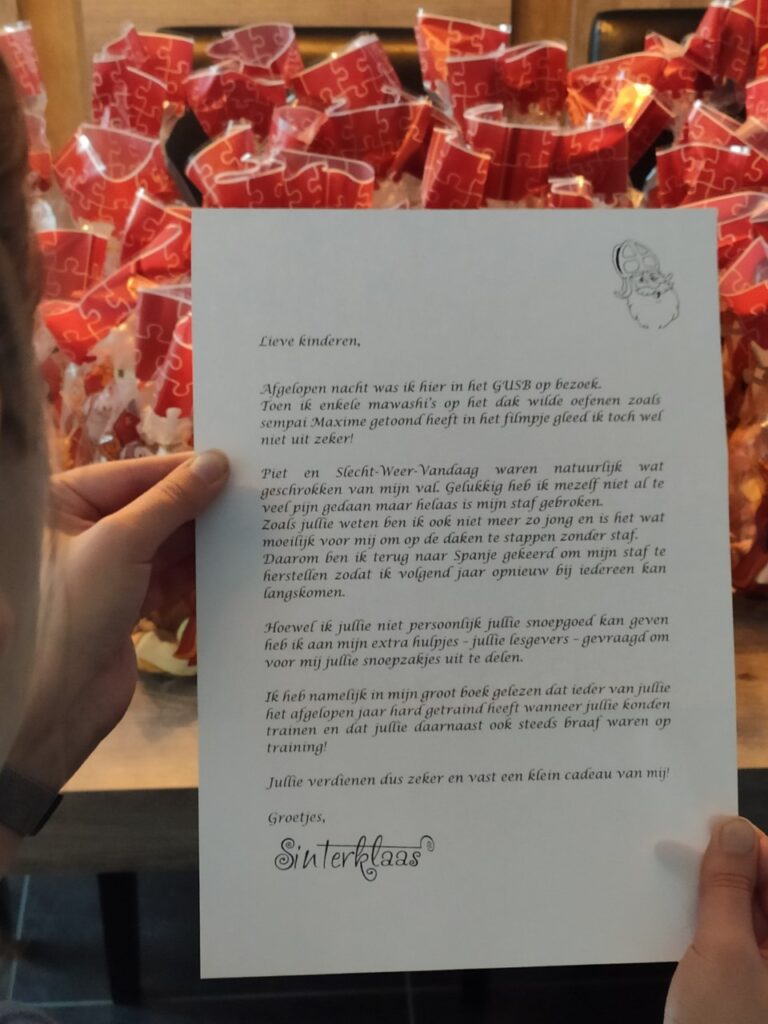 Lieve kinderen,
Afgelopen nacht was ik hier in het GUSB op bezoek.
Toen ik enkele mawashi's op het dak wilde oefenen zoals
sempai Maxime getoond heeft in het filmpje gleed ik toch wel
niet uit zeker!
Piet en Slecht-Weer-Vandaag waren natuurlijk wat
geschrokken van mijn val. Gelukkig heb ik mezelf niet al te
veel pijn gedaan maar helaas is mijn staf gebroken.
Zoals jullie weten ben ik ook niet meer zo jong en is het wat
moeilijk voor mij om op de daken te stappen zonder staf.
Daarom ben ik terug naar Spanje gekeerd om mijn staf te
herstellen zodat ik volgend jaar opnieuw bij iedereen kan
langskomen.
Hoewel ik jullie niet persoonlijk jullie snoepgoed kan geven
heb ik aan mijn extra hulpjes - jullie lesgevers - gevraagd om
voor mij jullie snoepzakjes uit te delen.
Ik heb namelijk in mijn groot boek gelezen dat ieder van jullie
het afgelopen jaar hard getraind heeft wanneer jullie konden
trainen en dat jullie daarnaast ook steeds braaf waren op
training!
Jullie verdienen dus zeker en vast een klein cadeau van mij!
Groetjes,
Sinterklaas